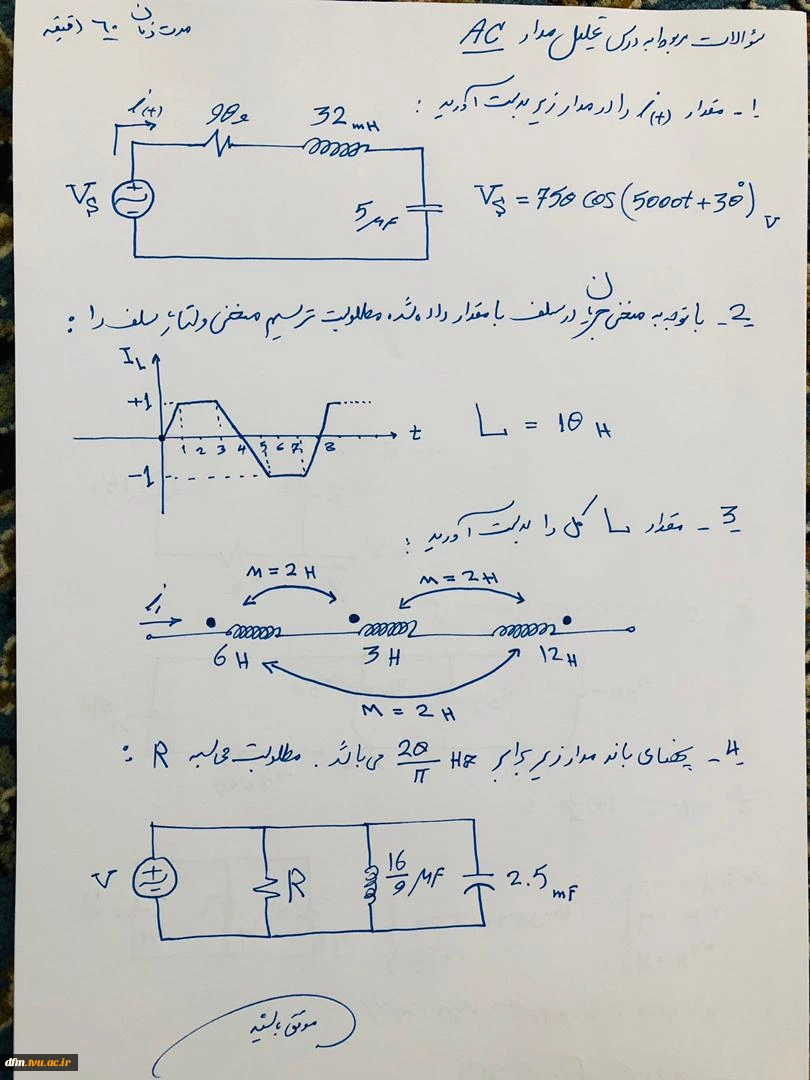 سؤالات مربوط به درس تحلیل مدار AC
مدت زمان 60 دقیقه
1- مقدار i(t) را در مدار زیر بدست آورید :
i(t)
90Ω
32mH
Vs
5μF
Vs = 750 cos(5000t + 30°) V
2- با توجه به منحنی جریان در سلف با مقدار داده شده مطلوبست ترسیم منحنی ولتاژ سلف را :
IL
+1
-1
1 2 3 4 5 6 7 8
t
L = 10 H
3- مقدار L کل را بدست آورید :
M = 2H
M = 2H
i1
6H
3H
12H
M = 2H
4- پهنای باند مدار زیر برابر 20/π Hz می باشد. مطلوبست محاسبه R :
V
R
16/9 μF
2.5mF
موفق باشید
dfm.tvu.ac.ir